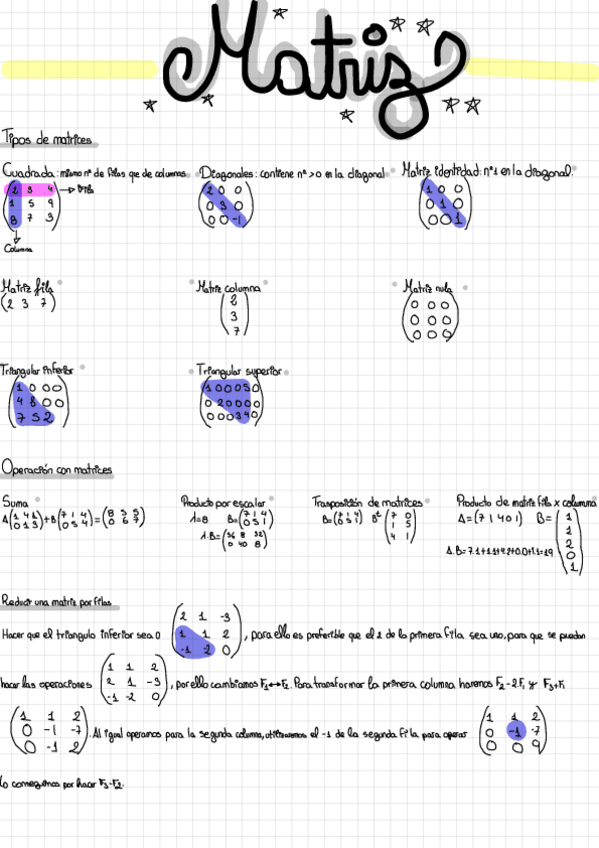 Matriz
Tipos de matrices
Cuadrada: mismo nº de filas que de columnas
Diagonales: contiene nº >0 en la diagonal
Matriz identidad: nº 1 en la diagonal.
2 3 4 → Fila
1 5 9
8 7 3
Columna
2 0 0
0 3 0
0 0 -1
1 0 0
0 1 0
0 0 1
Matriz fila
(2 3 7)
Matriz columna
2
3
7
Matriz nula
0 0 0
0 0 0
0 0 0
Triangular inferior
1 0 0 0
4 8 0 0
7 5 2
Triangular superior
1 0 0 0 5 0
0 2 0 0 0 0
0 0 0 3 4 0
Operación con matrices
Suma
Producto por escalar
λ=8 B=(7 1 4
0 5 1)
λ.B=(56 8 32
0 40 8)
Trasposición de matrices
B=(7 1 4
0 5 1) Bᵗ (7 0
1 5
4 1)
Producto de matriz fila x columna
A=(7 1 4 0 1) B=(1
1
2
0
1)
A.B=7.1+1.1+4.2+0.0+1.1=19
Reducir una matriz por filas
Hacer que el triangulo inferior sea 0 (2 1 -3
1 1 2
-1 -2 0), para ello es preferible que el 2 de la primera fila sea uno, para que se puedan
hacer las operaciones (1 1 2
2 1 -3
-1 -2 0), por ello cambiamos F₁↔F₂. Para transformar la primera columna haremos F₂-2F₁ y F₃+F₁
(1 1 2
0 -1 -7
0 -1 2). Al igual operamos para la segunda columna, utilizaremos el -1 de la segunda fila para operar (1 1 2
0 -1 -7
0 0 9)
lo conseguimos por hacer F₃-F₂.